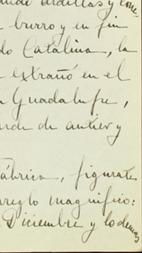 ardillas y come,
burro y en fin
do Catalina, la
extrañó en el
Guadalupe,
de antier y
ábrica, figurate
arreglo magnífico:
Diciembre y lo demas